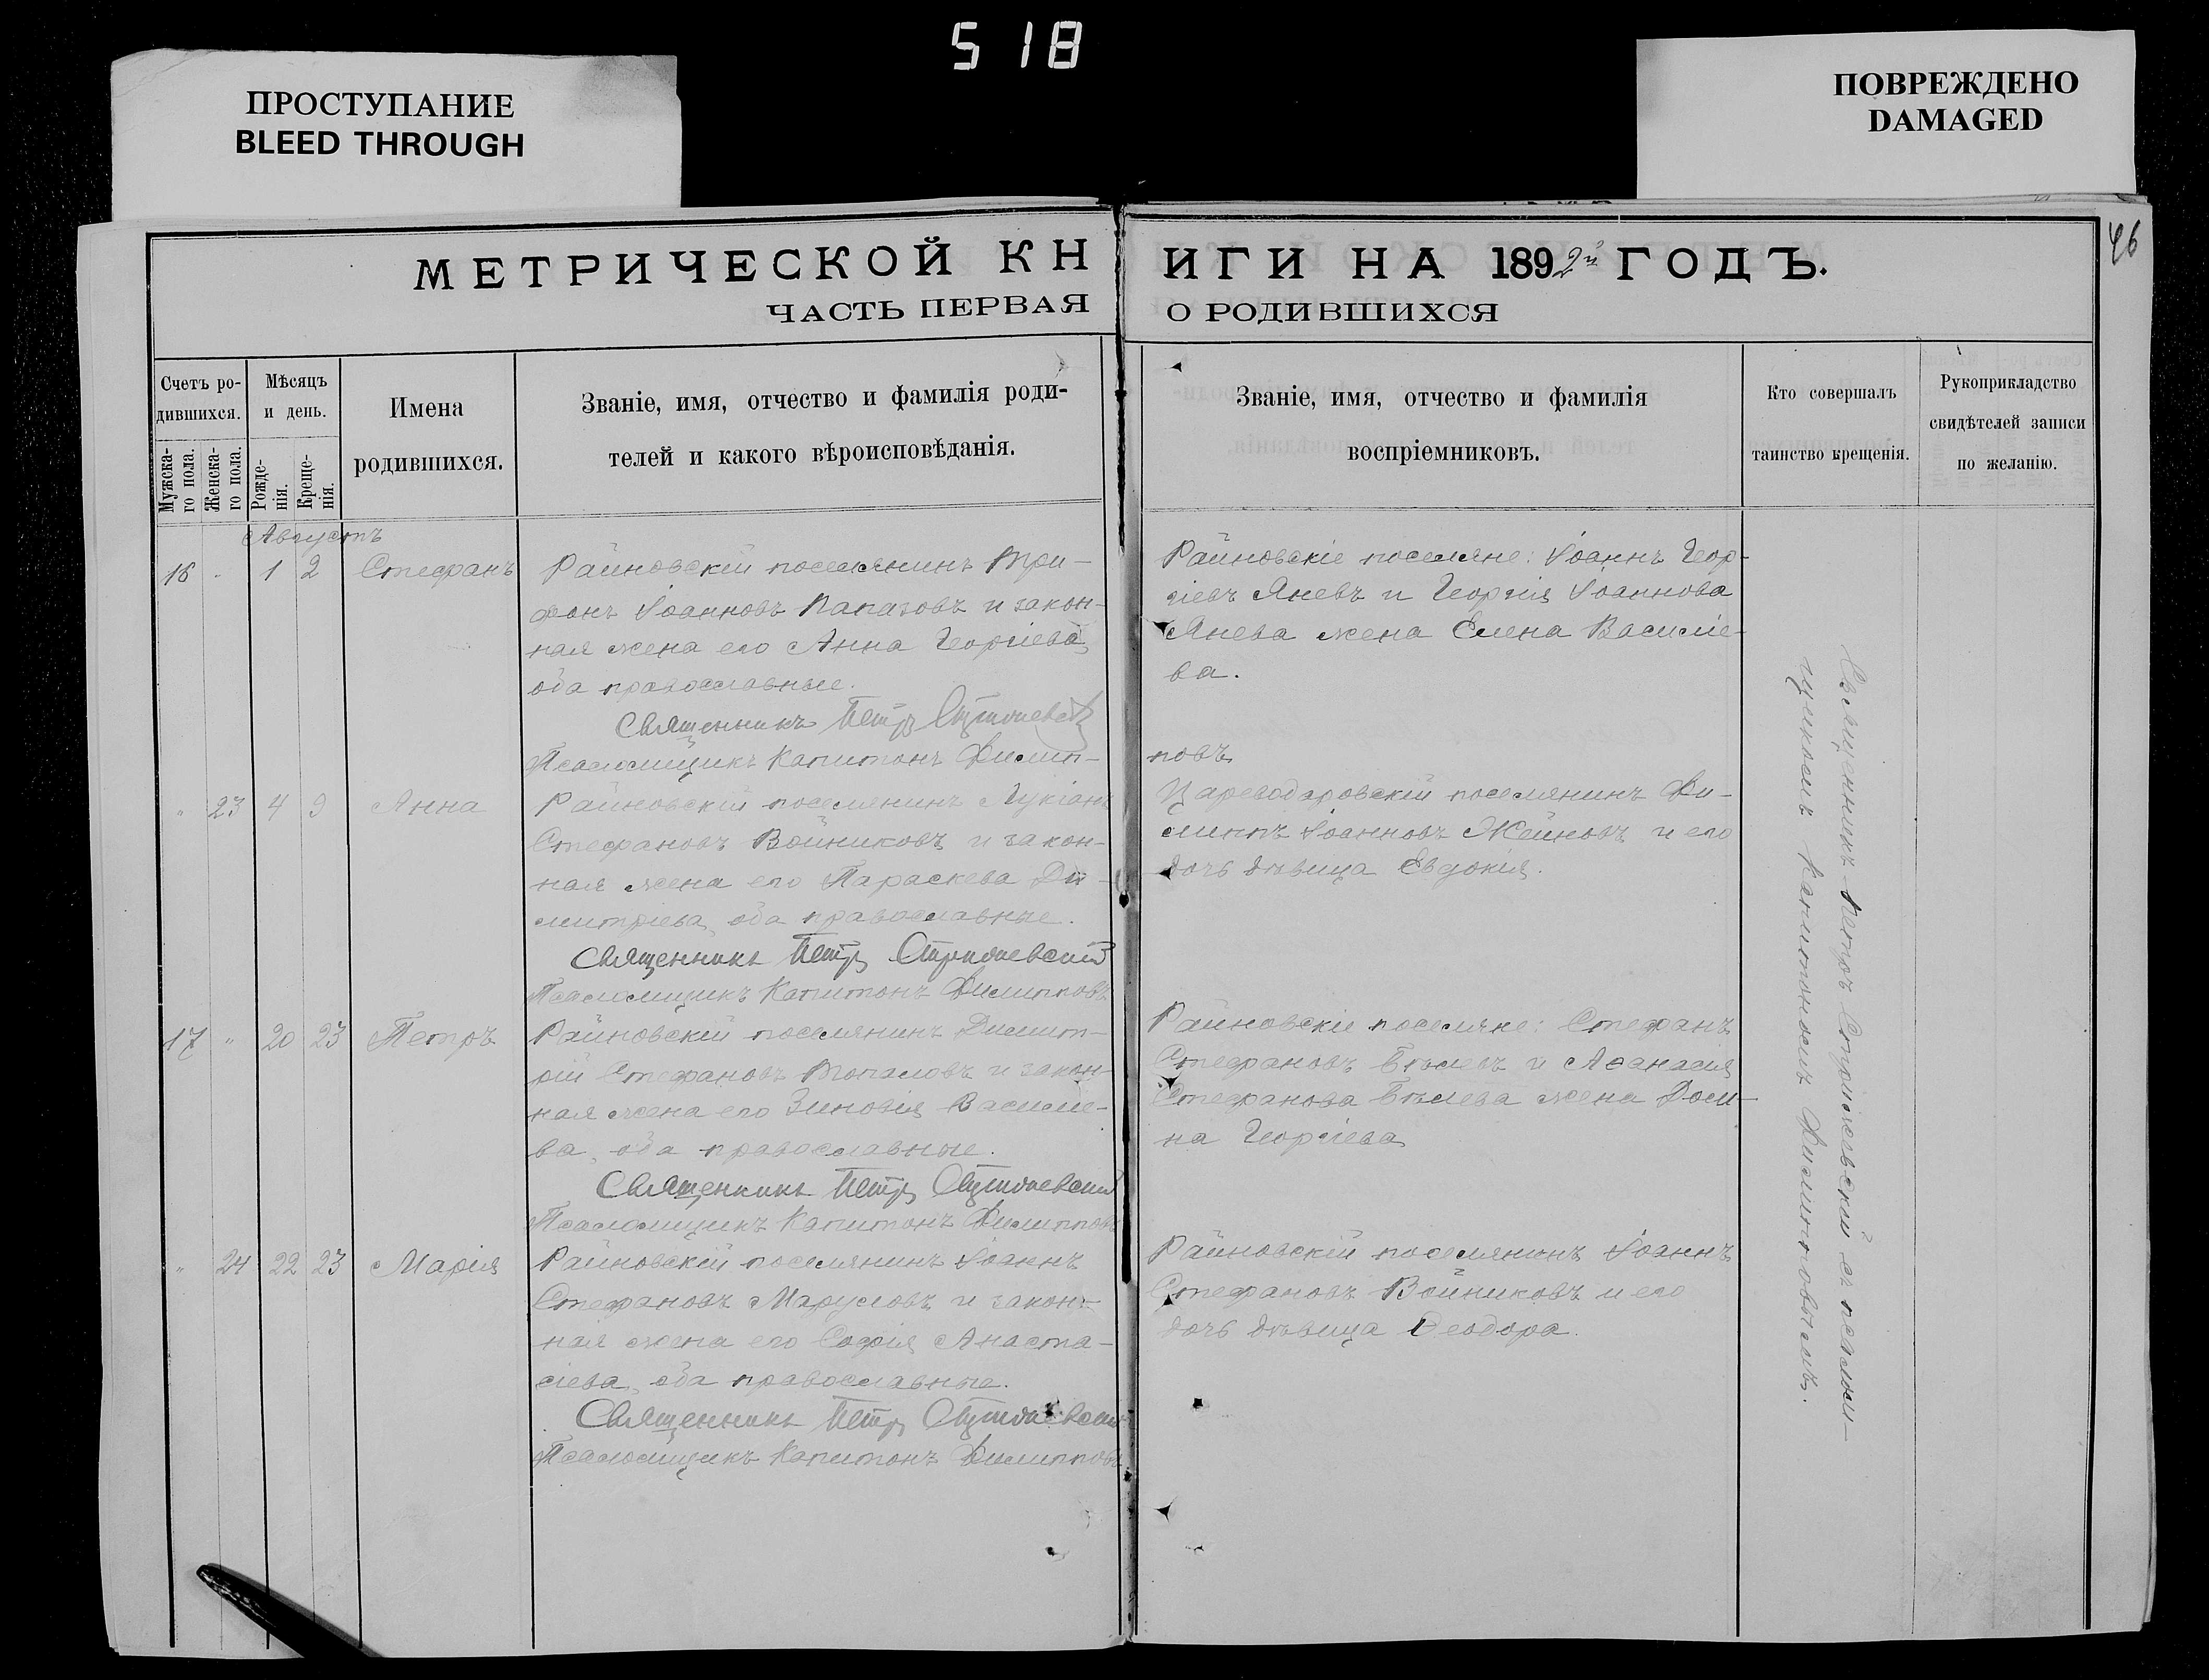 518
ПРОСТУПАНИЕ
BLEED THROUGH
ПОВРЕЖДЕНО
DAMAGED
46
МЕТРИЧЕСКОЙ КНИГИ НА 1892й ГОДЪ.
ЧАСТЬ ПЕРВАЯ О РОДИВШИХСЯ
Счетъ ро-
дившихся.
Мужска-
го пола.
Женска-
го пола.
Мѣсяцъ
и день.
Рожде-
нія.
Креще-
нія.
Имена
родившихся.
Званіе, имя, отчество и фамилія роди-
телей и какого вѣроисповѣданія.
Званіе, имя, отчество и фамилія
воспріемниковъ.
Кто совершалъ
таинство крещенія.
Рукоприкладство
свидѣтелей записи
по желанію.
Августъ
16 " 1 2 Стефанъ
Райновскій поселянинъ Три-
фонъ Іоанновъ Папазовъ и закон-
ная жена его Анна Георгіева,
оба православные.
Священникъ Петръ
Псаломщикъ Капитонъ Филип-
повъ
Райновскіе поселяне: Іоаннъ Геор-
гіевъ Яневъ и Георгія Іоаннова
Янева жена Елена Василіе-
ва.
" 23 4 9 Анна
Райновскій поселянинъ Лукіанъ
Стефановъ Войниковъ и закон-
ная жена его Параскева Ди-
митріева, оба православные.
Священникъ Петръ
Псаломщикъ Капитонъ Филипповъ
Цареводаровскій поселянинъ Фи-
липпъ Іоанновъ Жейновъ и его
дочь дѣвица Евдокія.
17 " 20 23 Петръ
Райновскій поселянинъ Димит-
рій Стефановъ Топаловъ и закон-
ная жена его Зиновія Василіе-
ва, оба православные.
Священникъ Петръ
Псаломщикъ Капитонъ Филипповъ
Райновскіе поселяне: Стефанъ
Стефановъ Бѣлевъ и Аѳанасія
Стефанова Бѣлева жена Дом-
на Георгіева
" 24 22 23 Марія
Райновскій поселянинъ Іоаннъ
Стефановъ Марусовъ и закон-
ная жена его Софія Анаста-
сіева, оба православные.
Священникъ Петръ
Псаломщикъ Капитонъ Филипповъ
Райновскій поселянинъ Іоаннъ
Стефановъ Войниковъ и его
дочь дѣвица Ѳеодора.
Священникъ Петръ съ псалом-
щикомъ Капитономъ Филипповымъ.